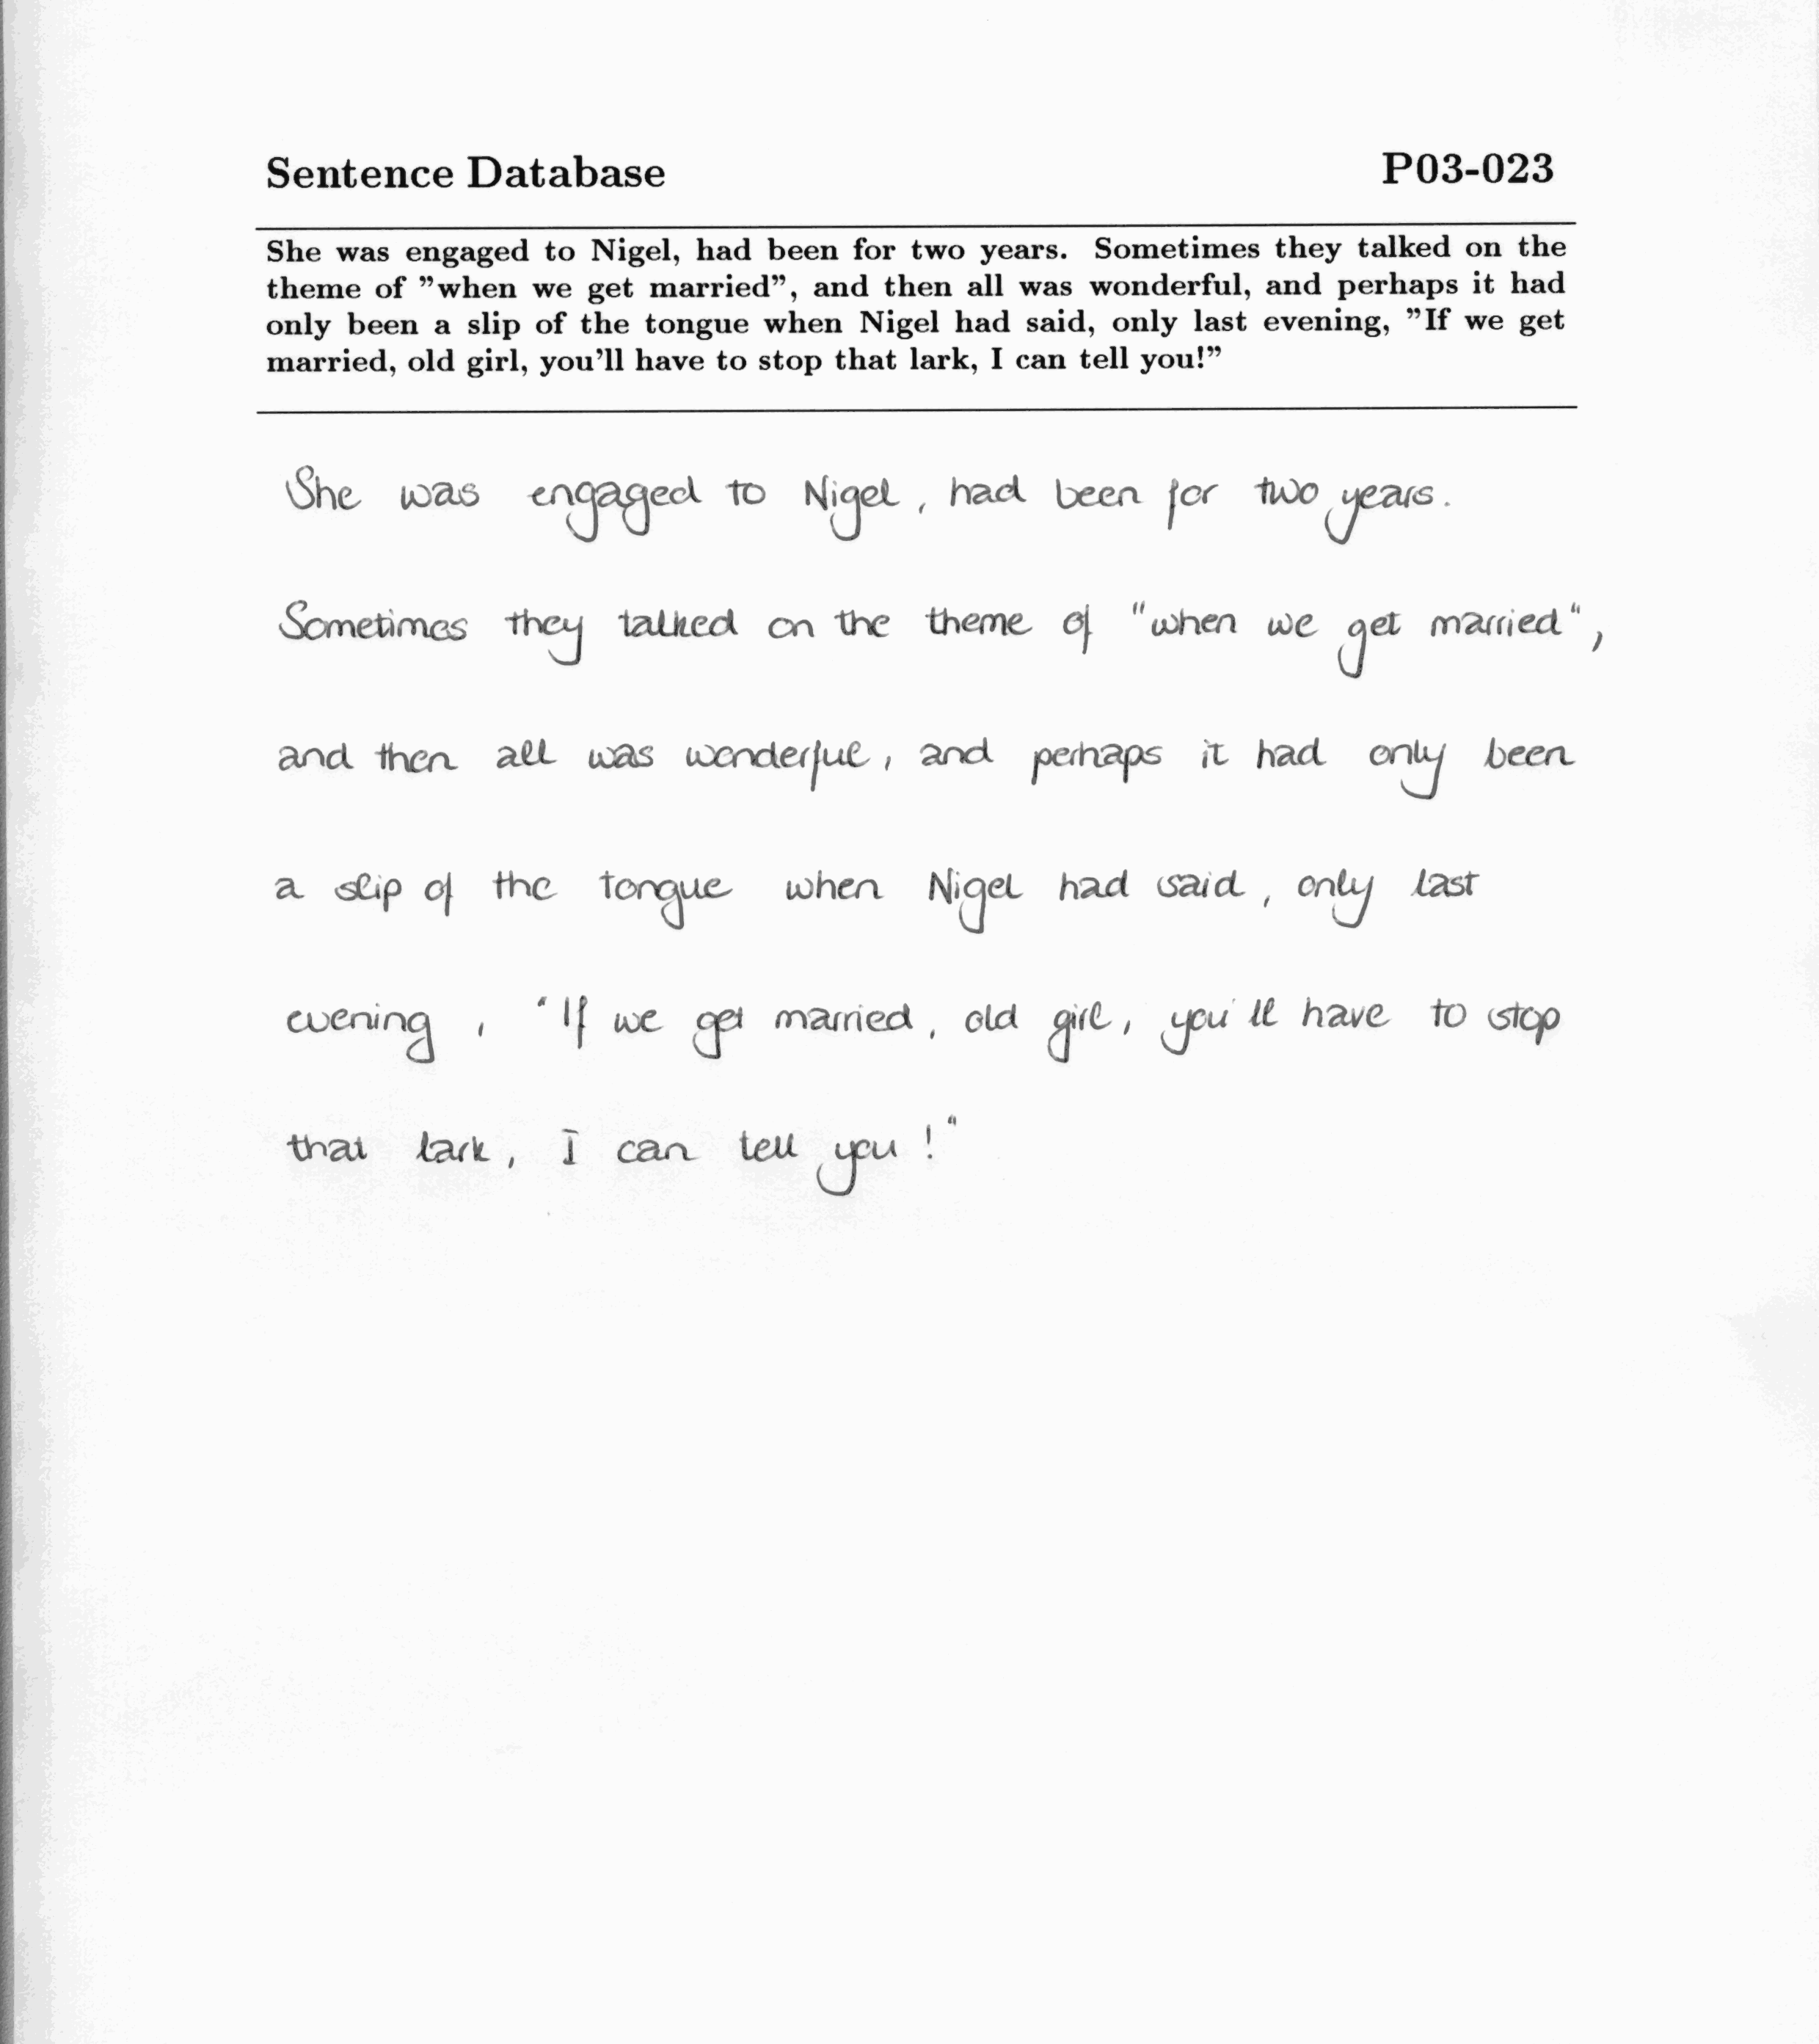 Sentence Database P03-023
She was engaged to Nigel, had been for two years. Sometimes they talked on the
theme of ”when we get married”, and then all was wonderful, and perhaps it had
only been a slip of the tongue when Nigel had said, only last evening, ”If we get
married, old girl, you’ll have to stop that lark, I can tell you!”
She was engaged to Nigel, had been for two years.
Sometimes they talked on the theme of "when we get married",
and then all was wonderful, and perhaps it had only been
a slip of the tongue when Nigel had said, only last
evening, "If we get married, old girl, you'll have to stop
that lark, I can tell you!"